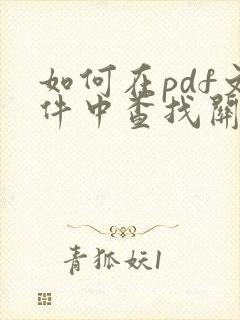 如何在pdf文
件中查找關
青狐妖1